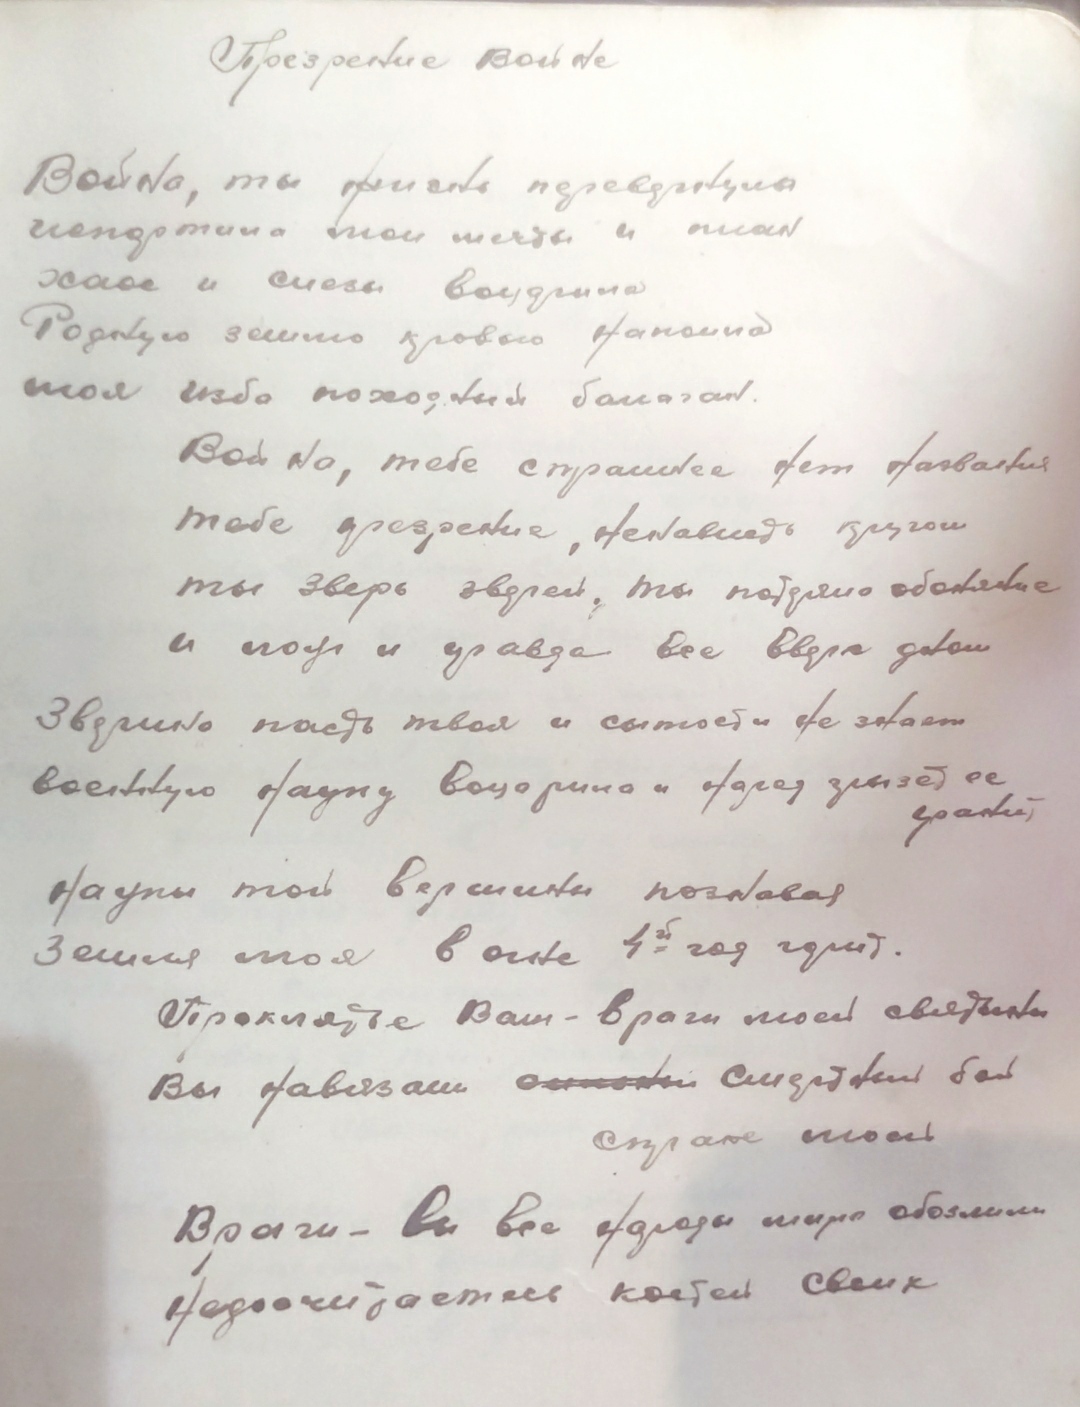 Презрение войне
Война, ты жизнь перевернула
испортила мои мечты и план
хаос и слезы воцарила
Родную землю кровью напоила
моя изба походный балаган.
Война, тебе страшнее нет названия
тебе презрение, ненависть кругом
ты зверь зверей, ты потеряла обоняние
и ложь и правда все вверх дном
Зверина пасть твоя и сытости не знает
военную науку воцарила и народ грызёт ее
гранит
науки той вершины познавая
Земля моя в огне 4й год горит.
Проклятье Вам - враги моей святыни
Вы навязали смертный бой
стране моей
Враги - вы все народы мира обозлили
недосчитаетесь костей своих